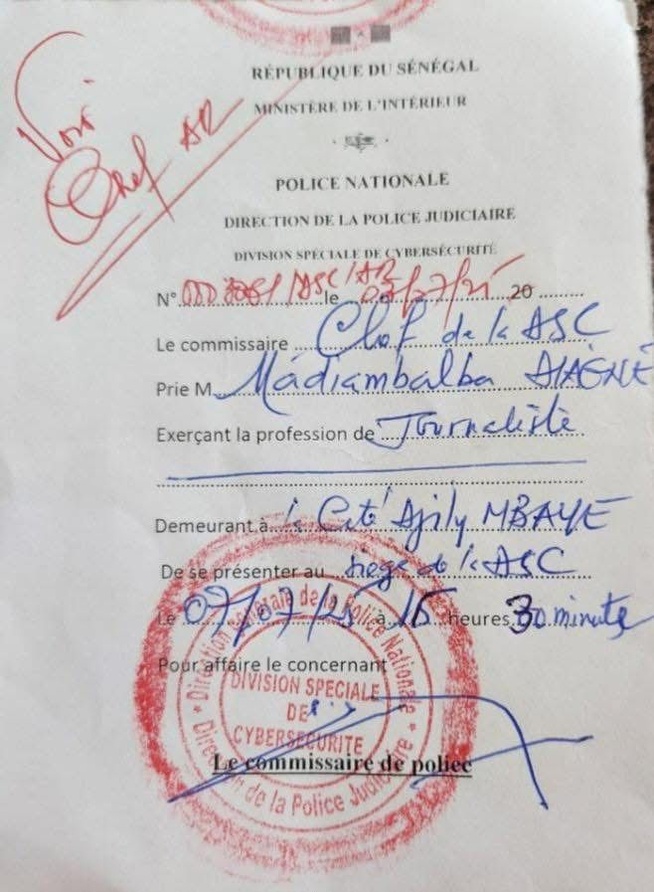 Voir
Chef AR
RÉPUBLIQUE DU SÉNÉGAL
MINISTÈRE DE L'INTÉRIEUR
POLICE NATIONALE
DIRECTION DE LA POLICE JUDICIAIRE
DIVISION SPECIALE DE CYBERSÉCURITÉ
N° /ASC/AR le /07/25 20
Le commissaire Chef de la ASC
Prie M. Madiambalba DIAGNE
Exerçant la profession de Journaliste
Demeurant à Cité MBAYE
De se présenter au siège de l'ASC
Le 07/07/25 à 15 heures 30 minute
Pour affaire le concernant
Direction Générale de la Police Nationale
DIVISION SPECIALE
DE
CYBERSECURITE
Direction de la Police Judiciaire
Le commissaire de police